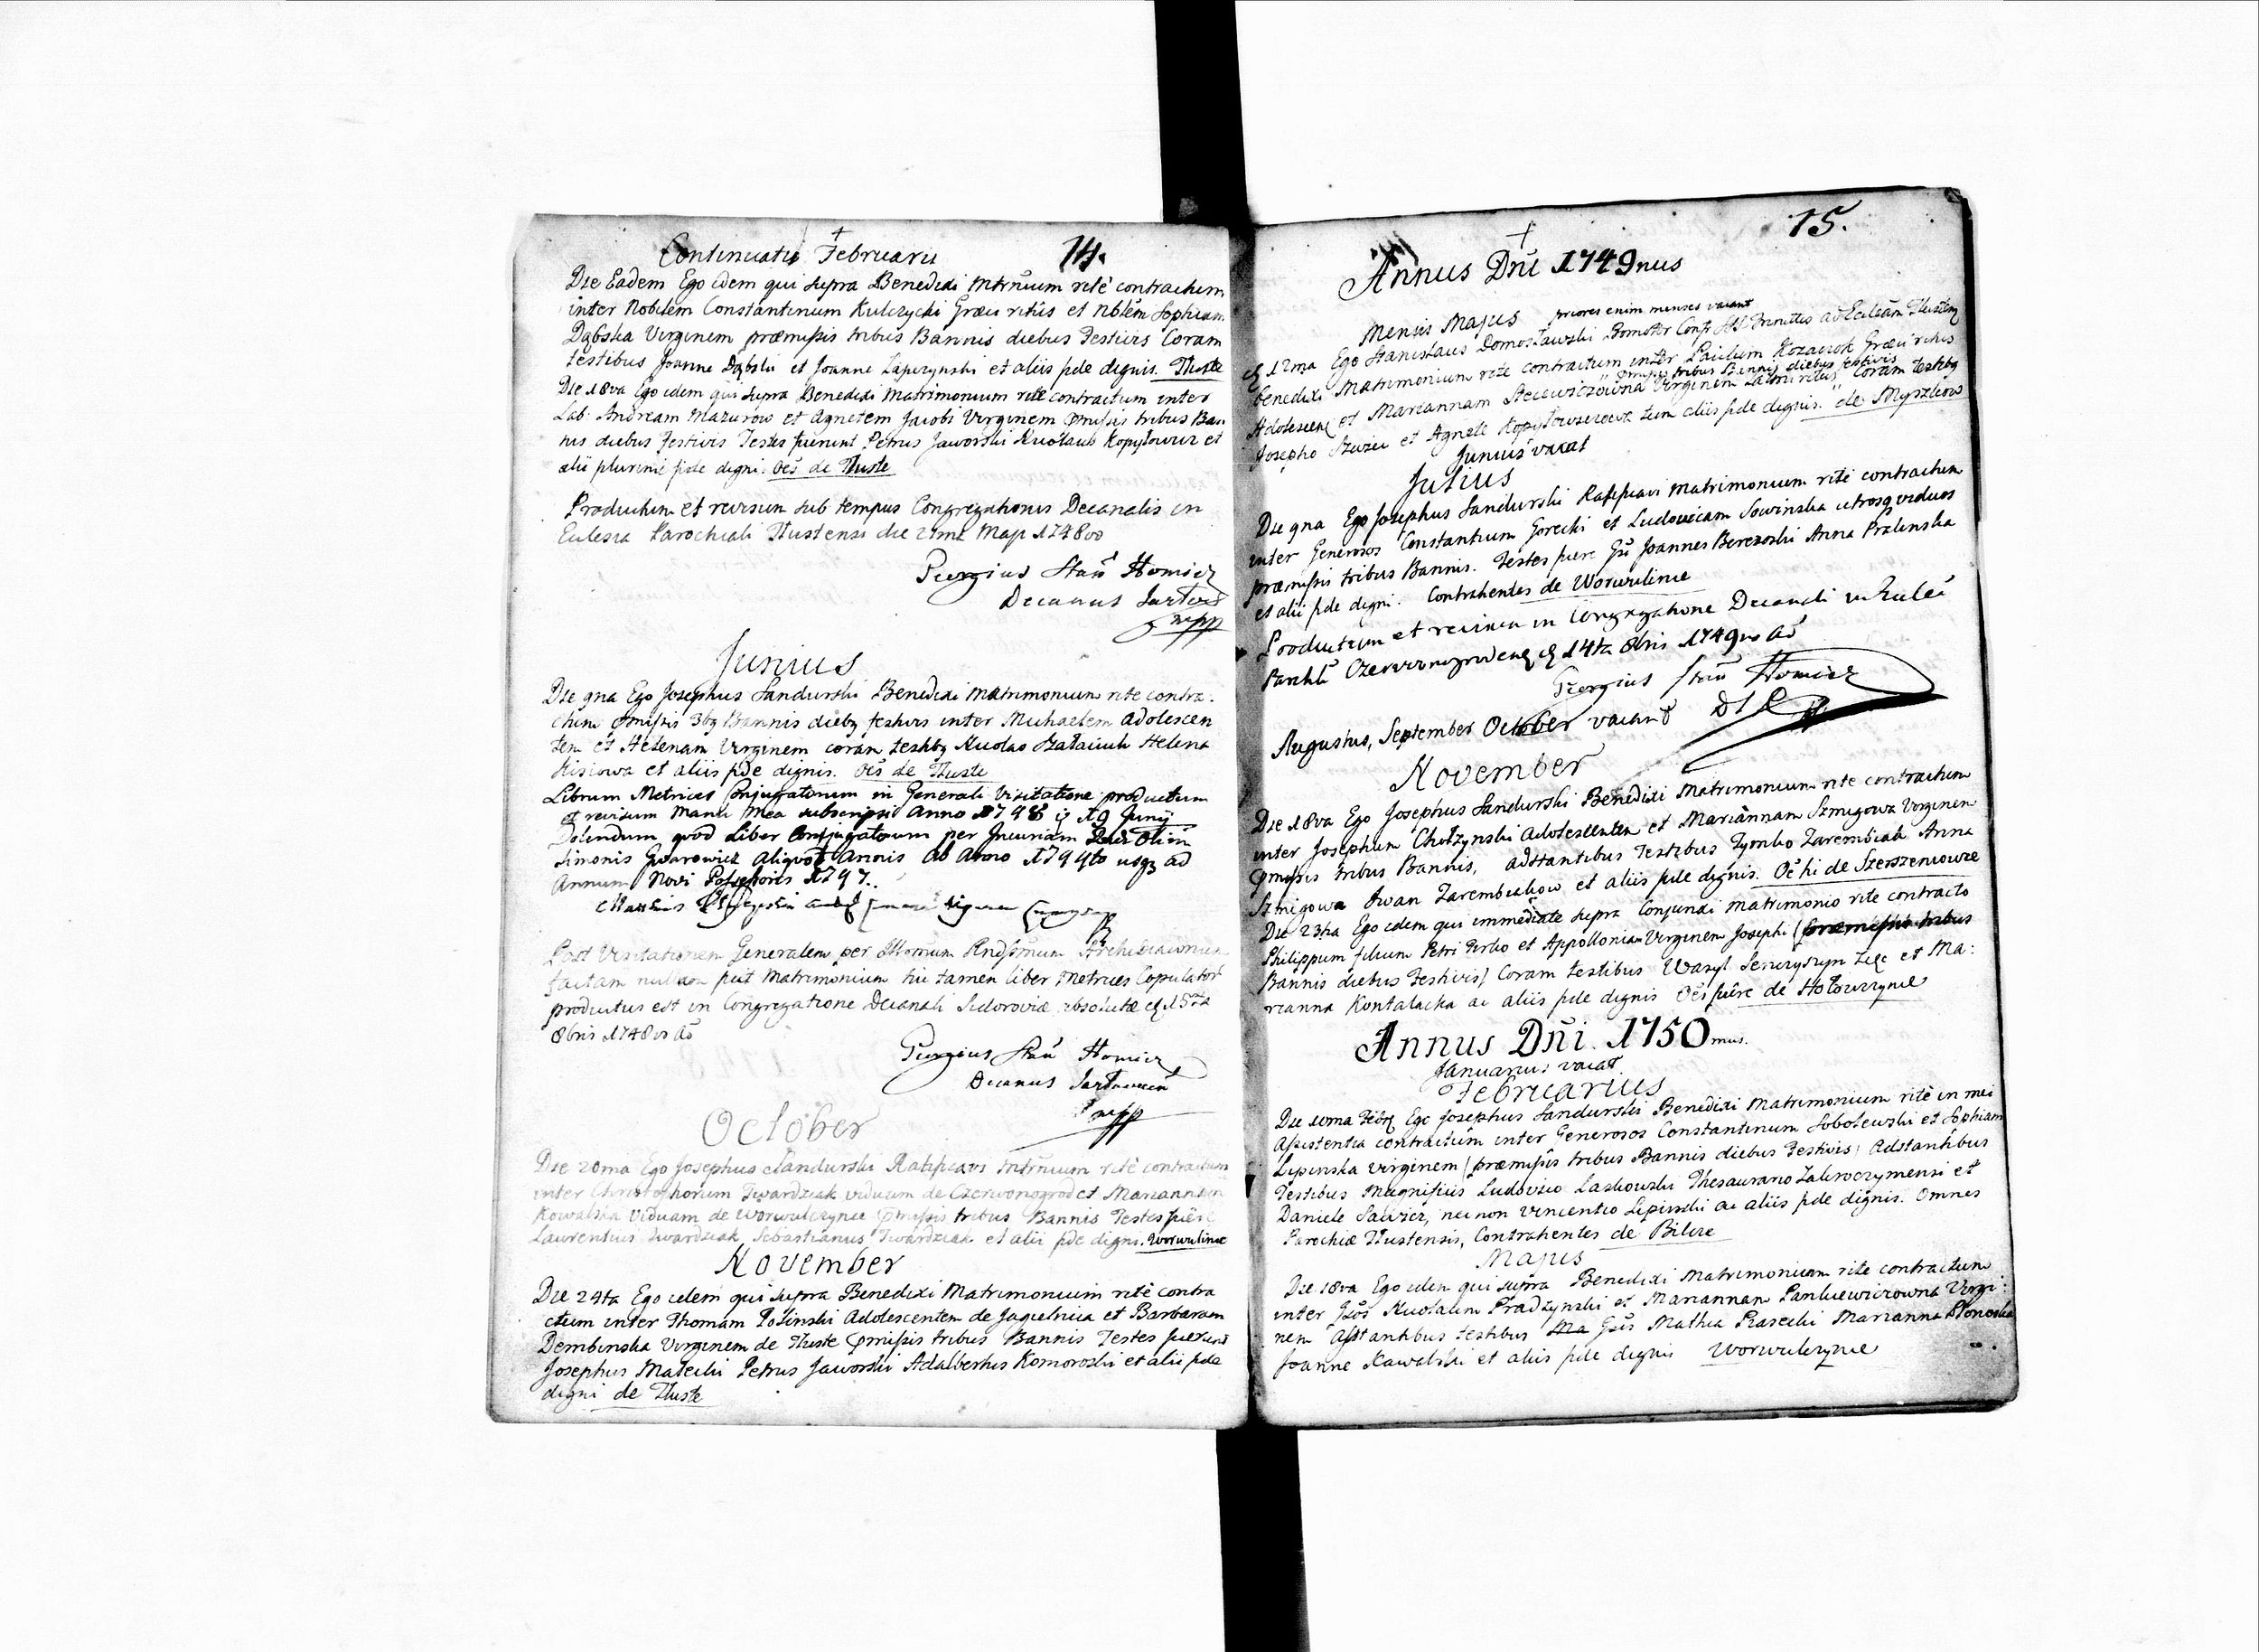 Continuatio Februarii 14.
Die Eadem Ego idem qui supra Benedixi Mtrnium ritè contractum
inter Nobilem Constantinum Kulczycki Græci ritûs et Nblem Sophiam
Dąbska Virginem præmissis tribus Bannis diebus Festivis Coram
testibus Joanne Dąbski et Joanne Lapczynski et aliis fide dignis. Tłuste
Die 18va Ego idem qui supra Benedixi Matrimonium ritè contractum inter
Lab. Andream Mazurow et Agnetem Jacobi Virginem pmissis tribus Ban
nis diebus Festivis Testes fuerunt Petrus Jaworski Nicolaus Kopyłowicz et
alii plurimi fide digni. Oes de Tłuste
Productum et revisum sub tempus Congregationis Decanalis in
Ecclesia Parochiali Tlustensi die 21ma Maji 1748vo
Georgius Stan Homicz
Decanus
mpp
Junius
Die 9na Ego Josephus Sandurski Benedixi Matrimonium rite contra-
ctum pmissis 3bq Bannis diebq festivis inter Michaelem adolescen
tem et Helenam Virginem coram testibq Nicolao Helena
et aliis fide dignis. Oes de Tłuste
Librum Metrices Conjugatorum in Generali Visitatione productum
et revisum Manu Mea subscripsi Anno 1748 19 Junij
Dolendum quod Liber Conjugatorum per Incuriam Olim
Simonis Gwarowicz Aliquot Annis ab Anno 1744to usq ad
Annum Novi Possessoris 1747.
Post Visitationem Generalem per Illrmum Rndssmum Archidiaconum
factam nullum fuit Matrimonium hic tamen liber Metrices Copulator
productus est in Congregatione Decanali Sidoroviæ absoluta 15ta
8bris 1748vo Ao
Georgius Stan Homicz
Decanus
mpp
October
Die 20ma Ego Josephus Sandurski Ratificavi mtrnium ritè contractum
inter Christophorum Twardziak viduum de Czerwonogrod et Mariannam
Kowalska Viduam de Worwulczynce pmissis tribus Bannis Testes fuere
Laurentius Twardziak Sebastianus Twardziak et alii fide digni. Worwulince
November
Die 24ta Ego idem qui supra Benedixi Matrimonium ritè contra
ctum inter Thomam Adolescentem de Jagielnica et Barbaram
Dembinska Virginem de Tluste pmissis tribus Bannis Testes fuerunt
Josephus Malecki Petrus Jaworski Adalbertus Komoroski et alii fide
digni de Tłuste
15.
Annus Dni 1749nus
Mensis Majus priores enim menses vacant
12ma Ego Stanislaus Domosławski Promotor ad Eccleam Tlusten
benedixi Matrimonium rite contractum inter Paulum Kozaczok Græci ritus
pmissis tribus Bannis diebus festivis
Adolescen et Mariannam Virginem Latini ritus, Coram testibq
Josepho et Agnete tum aliis fide dignis. de Myszkow
Junius vacat
Julius
Die 9na Ego Josephus Sandurski Ratificavi Matrimonium ritè contractum
inter Generosos Constantinum Gorecki et Ludovicam Sowinska utrosq viduos
præmissis tribus Bannis. Testes fuere Joannes Berezoski Anna Pralenska
et alii fide digni. Contrahentes de Worwulince
Productum et revisum in Congregatione Decanali in Ecclea
Parchli Czerwonogroden 14ta 8bris 1749no Ao
Georgius Stan Homicz
Augustus, September October vacant
November
Die 18va Ego Josephus Sandurski Benedixi Matrimonium rite contractum
inter Josephum Adolescentem et Mariannam Sznigowa Virginem
pmissis tribus Bannis, adstantibus Testibus Tymko Zarembiak Anna
Sznigowa Iwan Zarembiakow, et aliis fide dignis. Oes hi de Szerszeniowce
Die 23tia Ego idem qui immediate supra Conjunxi matrimonio rite contracto
Philippum filium Petri et Appolloniam Virginem Josephi (præmissis tribus
Bannis diebus Festivis) Coram testibus Wasyl et Ma:
rianna ac aliis fide dignis Oes fuêre de Hołowczynce
Annus Dni. 1750mus.
Januarius vacat
Februarius
Die 10ma Febr Ego Josephus Sandurski Benedixi Matrimonium ritè in mei
Assistentia contractum inter Generosos Constantinum Sobolewski et Sophiam
Lipinska virginem (præmissis tribus Bannis diebus Festivis) Adstantibus
Testibus Magnificis Ludovico Laskowski Thesaurario Zakroczymensi et
Daniele Sawicz, nec non Vincentio Lipinski ac aliis fide dignis. Omnes
Parochiæ Tlustensis, Contrahentes de Bilcze
Majus
Die 18va Ego idem qui supra Benedixi Matrimonium rite contractum
inter Gsos Nicolaum Pradzynski et Mariannam Pankiewiczowna Virgi:
nem Asstantibus testibus Ma Gsis Mathia Piasecki Marianna
Joanne Kawalski et aliis fide dignis Worwulczynce